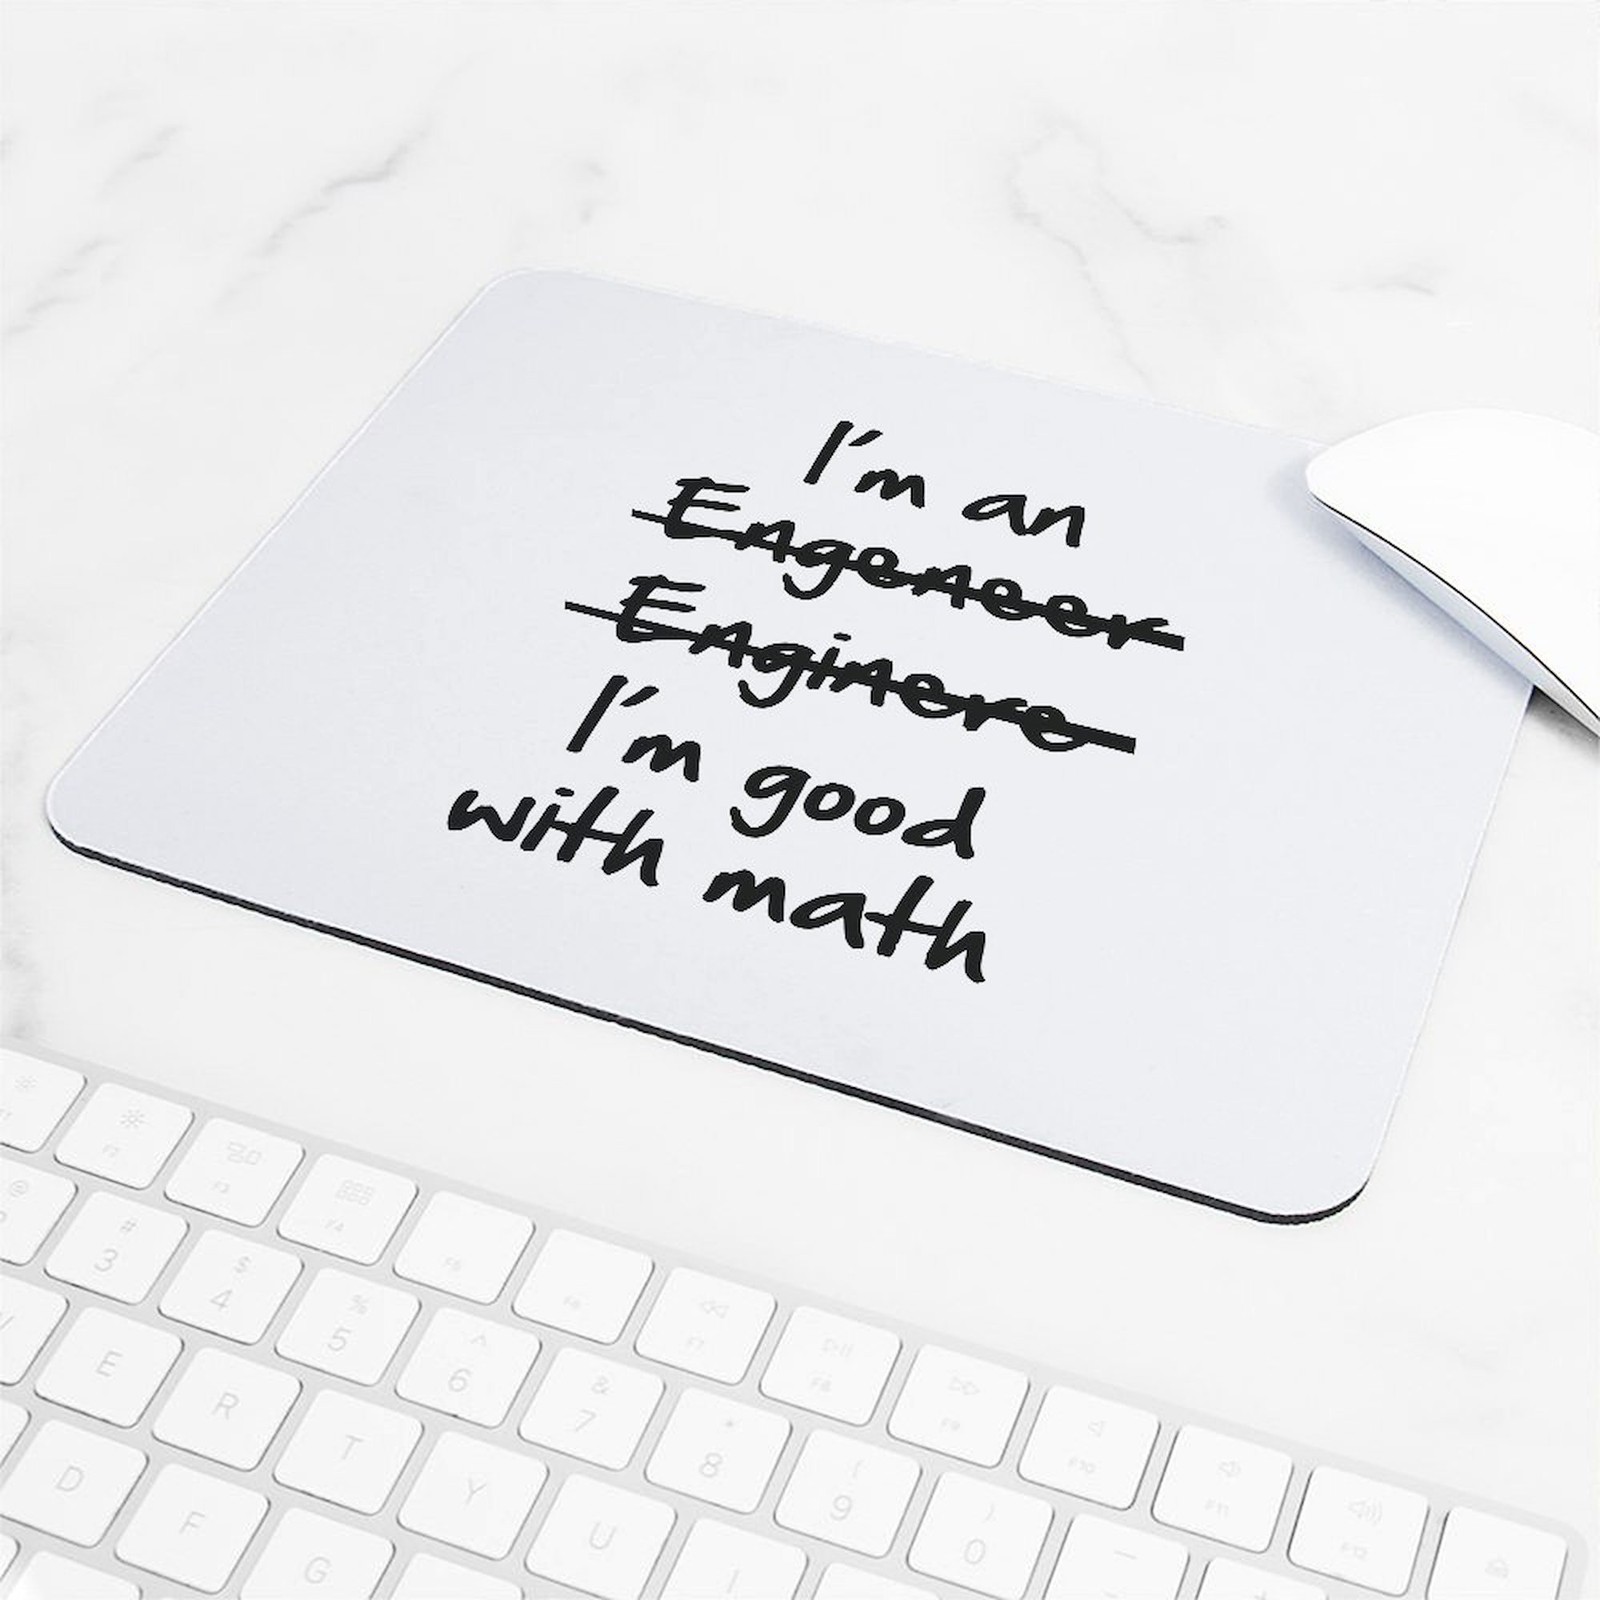 I'm an
Engeneer
Enginere
I'm good
with math
F2
F3
F4
F5
F6
F7
F8
F9
F10
F11
F12
# 3
$ 4
% 5
^ 6
& 7
* 8
( 9
) 0
E R T Y U I
D F G